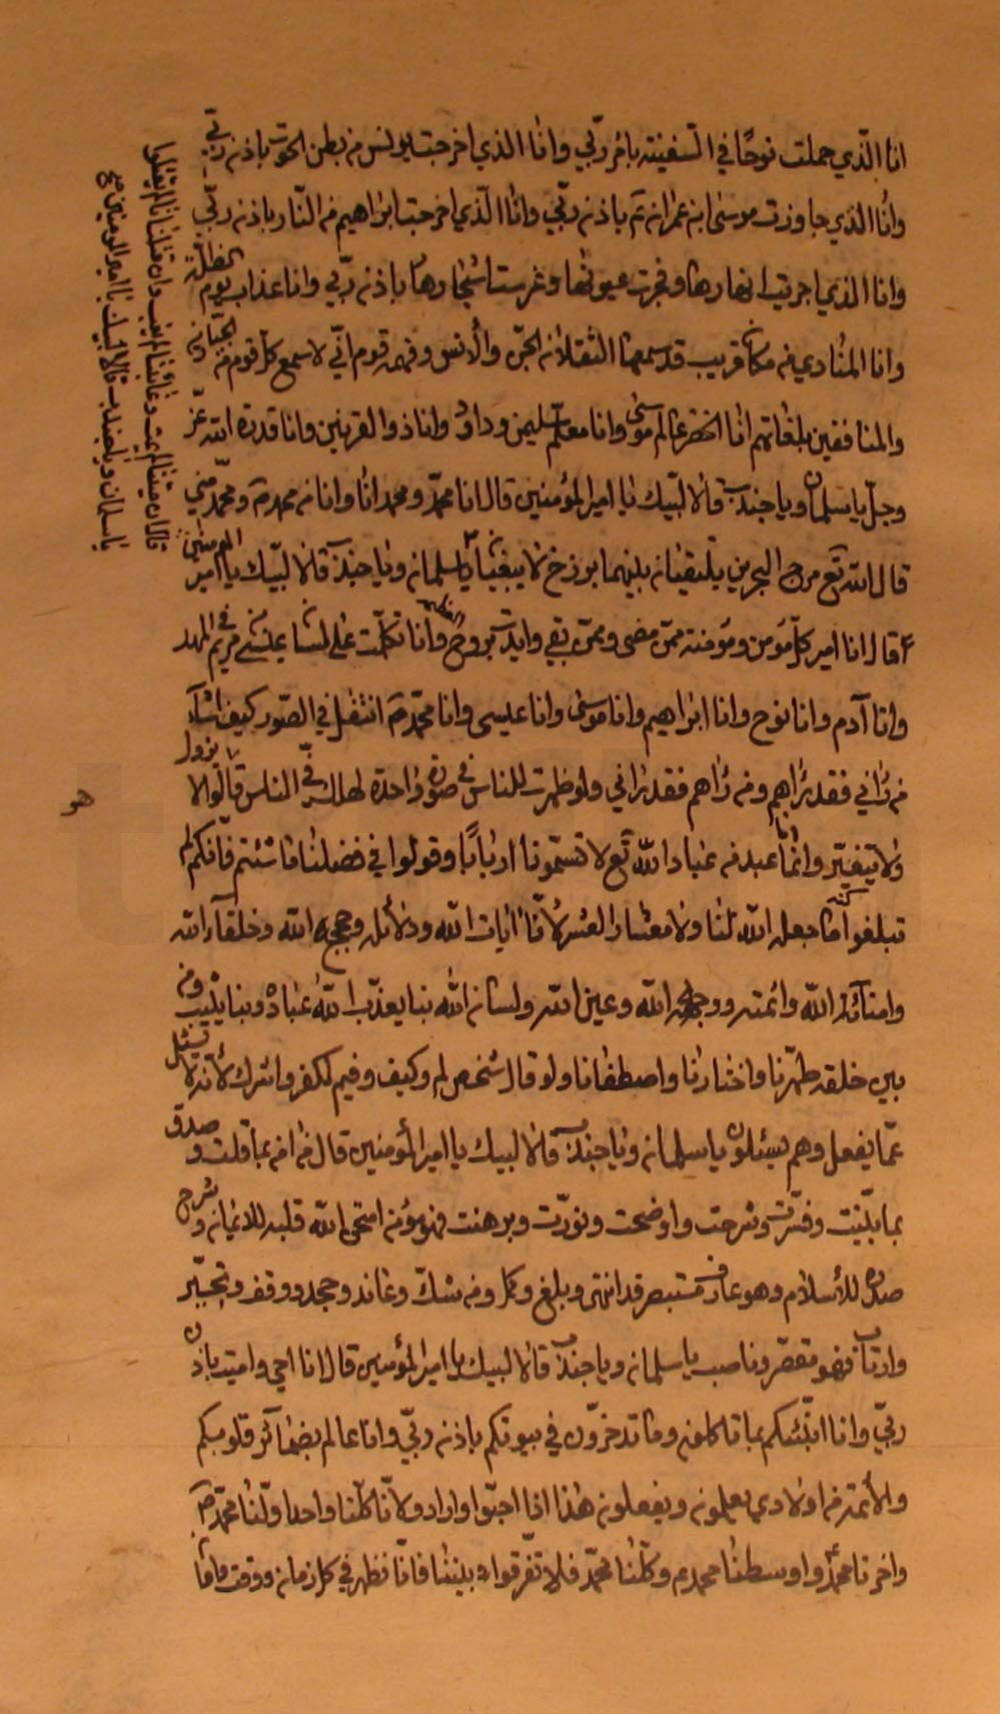 انا الذي حملت نوحًا في السفينة بامر ربّي وانا الذي اخرجت يونس من بطن الحوت باذن ربّي
وانا الذي جاوزت موسى ابن عمران تم باذن ربّي وانا الذي اخرجت ابراهيم من النار باذن ربّي
وانا الذي اجريت انهارها وفجرت عيونها وغرست اشجارها باذن ربّي وانا عذاب يوم الظلّة
وانا المنادي من مكان قريب قد سمعها الثقلان الجنّ والانس وفهمه قوم انّي لاسمع كل قوم من الجبّارين
والمنافقين بلغاتهم انا الخضر عالم موسى وانا معلّم سليمن وداود وانا ذو القرنين وانا قدرة الله عز
وجل يا سلمان ويا جندب قالا لبّيك يا امير المؤمنين قال انا محمّد ومحمد انا وانا من محمد ص ومحمّد منّي
قال الله تع مرج البحرين يلتقيان بينهما برزخ لا يبغيان يا سلمان ويا جندب قالا لبّيك يا امير المؤمنين
قال انا امير كلّ مؤمن ومؤمنة ممّن مضى وممّن بقي وايدت بروح العظمة وانا تكلّمت على لسان عيسى بن مريم في المهد
وانا آدم وانا نوح وانا ابراهيم وانا موسى وانا عيسى وانا محمّد ص انتقل في الصّور كيف اشاء
من رٰاني فقد رٰاهم ومن رٰاهم فقد رٰاني ولو ظهرت للناس في صورة واحدة لهلك فيّ الناس وقالوا لا يزول
ولا يتغيّر وانّما انا عبد من عباد الله تع لا تسمّونا اربابًا وقولوا في فضلنا ما شئتم فانّكم لم
تبلغوا كنه ما جعله الله لنا ولا معشار العشر لانّا اٰيات الله ودلائله وحجج الله وخلفاء الله
وامناء الله وائمته ووجه الله وعين الله ولسان الله بنا يعذّب الله عباده وبنا يثيب ومن
بين خلقه طهّرنا واختارنا واصطفانا ولو قال شخص لم وكيف وفيم لكفر واشرك لانّه لا يسئل
عمّا يفعل وهم يسئلون يا سلمان ويا جندب قالا لبيك يا امير المؤمنين قال من اٰمن بما قلت وصدق
بما بيّنت وفسّرت وشرحت واوضحت ونورّت وبرهنت فهو مؤمن امتحن الله قلبه للايمان وشرح
صدره للاسلام وهو عارف مستبصر قد انتهى وبلغ وكمل ومن شكّ وعاند وجحد ووقف وتحيّر
وارتاب فهو مقصّر وناصب يا سلمان ويا جندب قالا لبيك يا امير المؤمنين قال انا احيي واميت باذن
ربّي وانا انبّئكم بما تاكلون وما تدخرون في بيوتكم باذن ربّي وانا عالم بضمآئر قلوبكم
والائمة من اولادي يعلمون ويفعلون هذا اذا احبّوا وارادو لانّا كلّنا واحد اوّلنا محمّد ص
واخرنا محمّد واوسطنا محمد ع وكلّنا محمّد فلا تفرّقوا بيننا فانّا نظهر في كل زمان ووقت واوان
قال ان ميتنا لم يمت وغائبنا لم يغب وان قتلانا لم يقتلوا
يا سلمان ويا جندب قالا لبيك يا امير المومنين ع
هو